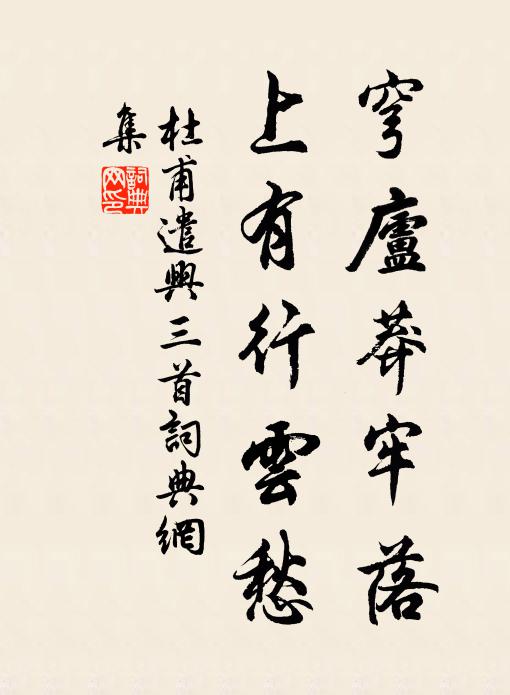 穹廬莽牢落
上有行雲愁
杜甫遣興三首詞典網
集
詞典
网印